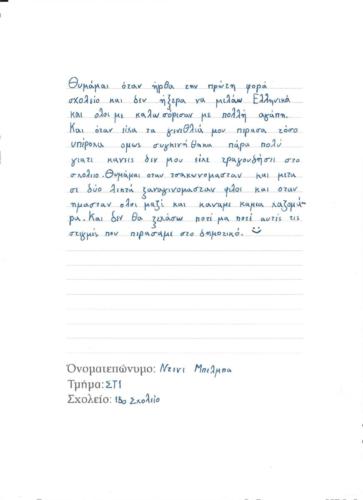 Θυμάμαι όταν ήρθα την πρώτη φορά
σχολείο και δεν ήξερα να μιλάω Ελληνικά
και ολοι με καλωσόρισαν με πολλή αγάπη.
Και όταν είχα τα γενέθλιά μου περασα τόσο
υπέροχα ομως συγκινήθηκα πάρα πολύ
γιατι κανεις δεν μου είχε τραγουδήσει στο
σχολειο. Θυμάμαι οταν τσακωνομασταν και μετα
σε δύο λεπτά ξαναγινομασταν φιλοι και οταν
ημασταν ολοι μαζί και καναμε καμια χαζομά-
ρα. Και δεν θα ξεχάσω ποτέ μα ποτέ αυτές τις
στιγμές που περασαμε στο δημοτικό.
Όνοματεπώνυμο: Ντενι Μπελμπα
Τμήμα: ΣΤ1
Σχολείο: 13ο Σχολείο